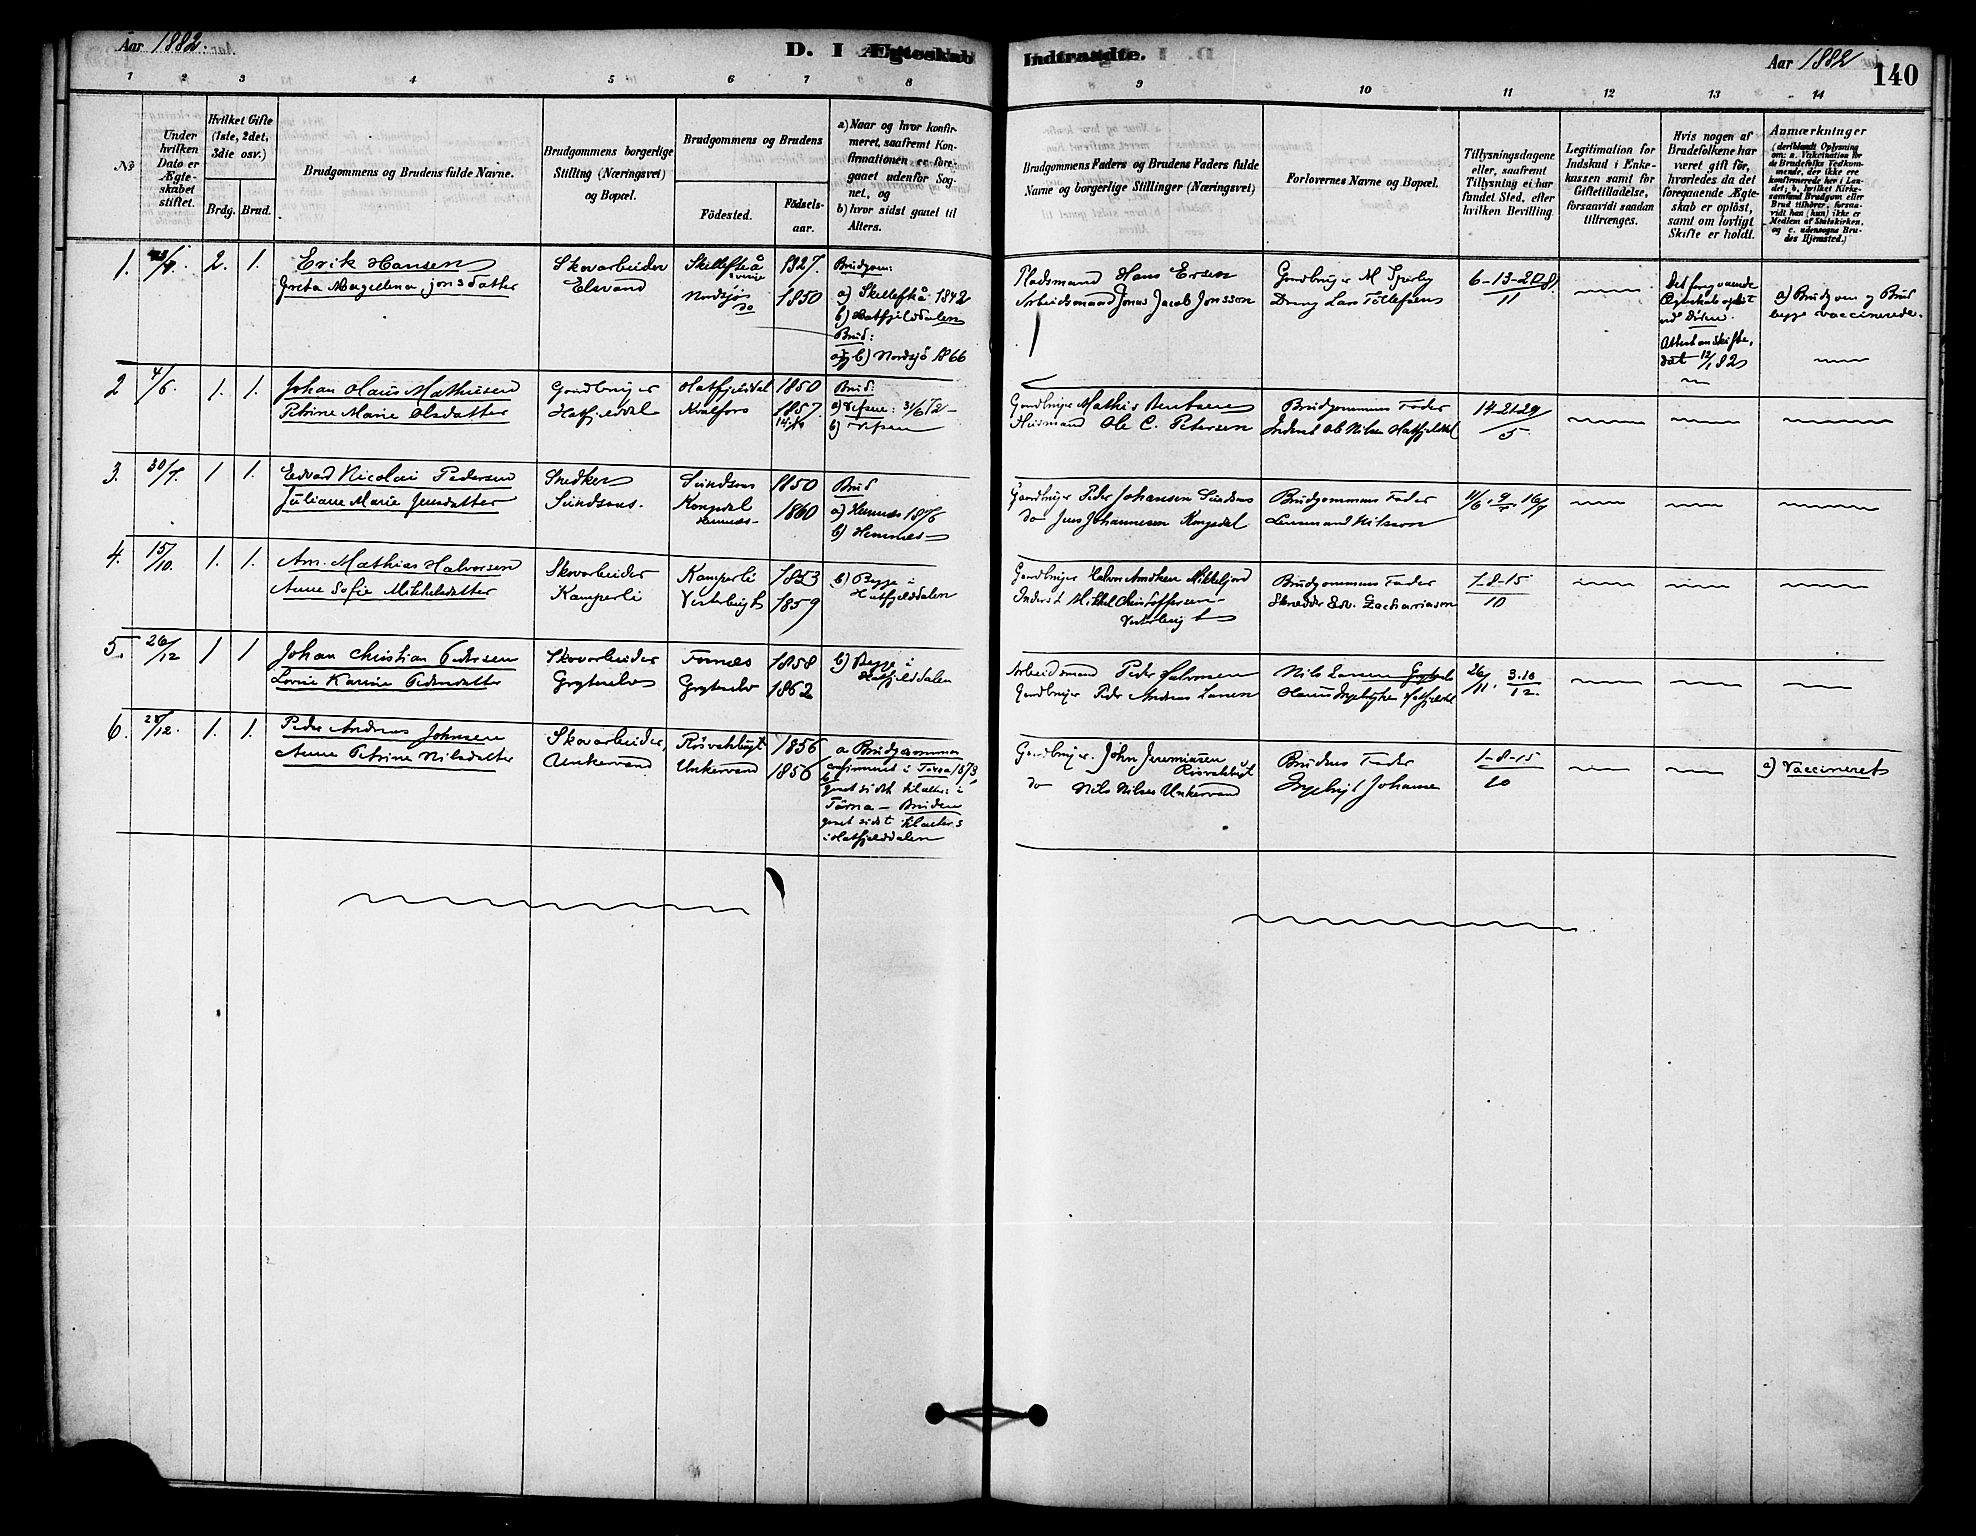 Aar 1882.
D. I Ægteskab
Indtraadte.
Aar 1882
140
1 2 3 4 5 6 7 8
9 10 11 12 13 14
No
Under hvilken Dato er Ægteskabet stiftet.
Hvilket Gifte (1ste, 2det, 3die osv.)
Brdg. Brud.
Brudgommens og Brudens fulde Navne.
Brudgommens borgerlige Stilling (Næringsvei) og Bopæl.
Brudgommens og Brudens
Födested.
Födselsaar.
a) Naar og hvor konfirmeret, saafremt Konfirmationen er foregaaet udenfor Sognet, og
b) hvor sidst gaaet til Alters.
Brudgommens Faders og Brudens Faders fulde Navne og borgerlige Stillinger (Næringsvei)
Forlovernes Navne og Bopæl.
Tillysningsdagene eller, saafremt Tillysning ei har fundet Sted, efter hvilken Bevilling.
Legitimation for Indskud i Enkekassen samt for Giftetilladelse, forsaavidt saadan tiltrænges.
Hvis nogen af Brudefolkene har været gift för, hvorledes da det foregaaende Ægteskab er oplöst, samt om lovligt Skifte er holdt.
Anmærkninger
(deriblandt Oplysning om: a. Vakcination for de Brudefolks Vedkommende, der ikke ere konfirmerede her i Landet; b. hvilket Kirkesamfund Brudgom eller Brud tilhörer, forsaavidt han (hun) ikke er Medlem af Statskirken, og c. udensogns Brudes Hjemsted.)
1.
2. 1.
Erik Hansen
Greta Magdlena Jonsdatter
Skovarbeider
Elsvand
Skellefteå
Nordsjø
do
1827.
1850
Brudgom:
a) Skellefteå 1842
b) Hatfjelddalen
Brud:
a) b) Nordsjö 1866
Pladsmand Hans Ersen
Arbeidsmand Jonas Jacob Jonsson
Gaardbruger M
Dreng Lars Tollefsen
6-13-20
11
Det foregaaende
Ægteskab opløst
ved Døden.
Attest om skifte,
dat 12/1 82
a) Brudgom og Brud
begge vaccinerede.
2 4/6 1. 1.
Johan Olaus Mathisen
Petrine Marie Olsdatter
Gaardbruger
Hatfjelddal
Hatfjelddal
Kvalfors
1850
1857
Brud:
a) Vefsen:
b) Vefsen
Gaardbruger Mathis Bentsen
Huusmand Ole C. Petersen
Brudgommens Fader
Inderst Ole Nilsen Hatfjelddal
14-21-29
5
3. 30/7. 1 1.
Edvard Nicolai Pedersen
Juliane Marie Jensdatter
Snedker
Sundsaas.
Sundsaas
Kongsdal
Hemnæs
1850
1860
Brud
a) Hemnæs 1876
b) Hemnæs
Gaardbruger Peder Johansen Sundsaas
do Jens Johannesen Kongsdal
Brudgommens Fader
Lensmand Nilsson
4. 15/10. 1. 1.
Arn. Mathias Halvorsen
Anne Sofie Mikkelsdatter
Skovarbeider
Kamperli
Kamperli
Vesterbugt
1853
1859
b) Begge i
Hatfjelddalen
Gaardbruger Halvor Arntsen Mikkeljord
Inderst Mikkel Christoffersen
Vesterbugt
Brudgommens Fader
Skredder Edv. Zachariasen
1-8-15
10
5. 26/12 1 1
Johan Christian Pedersen
Lovise Karine Pedersdatter
Skovarbeider
Grytnelv
Fornæs
Grytnelv
1858
1862
b) Begge i
Hatfjelddalen
Arbeidsmand Peder Halvorsen
Gaardbruger Peder Andreas Larsen
Nils Larsen
Hatfjelddal
26/11. 3.10
12.
6. 28/12. 1. 1.
Peder Andreas Johnsen
Anne Petrine Nilsdatter
Skovarbeider,
Unkervand
Røsvatsbugt
Unkervand
1856
1856
a Brudgommen
confirmeret i Tärna 1873
b gaaet sidst til alters i
Tärna - Bruden
gaaet sidst til alters
i Hatfjelddalen
Gaardbruger. John Jeremiasen
Røsvatsbugt
do Nils Nilsen Unkervand
Brudens Fader
Ingebrigt Johansen
1-8-15
10
a) Vaccineret